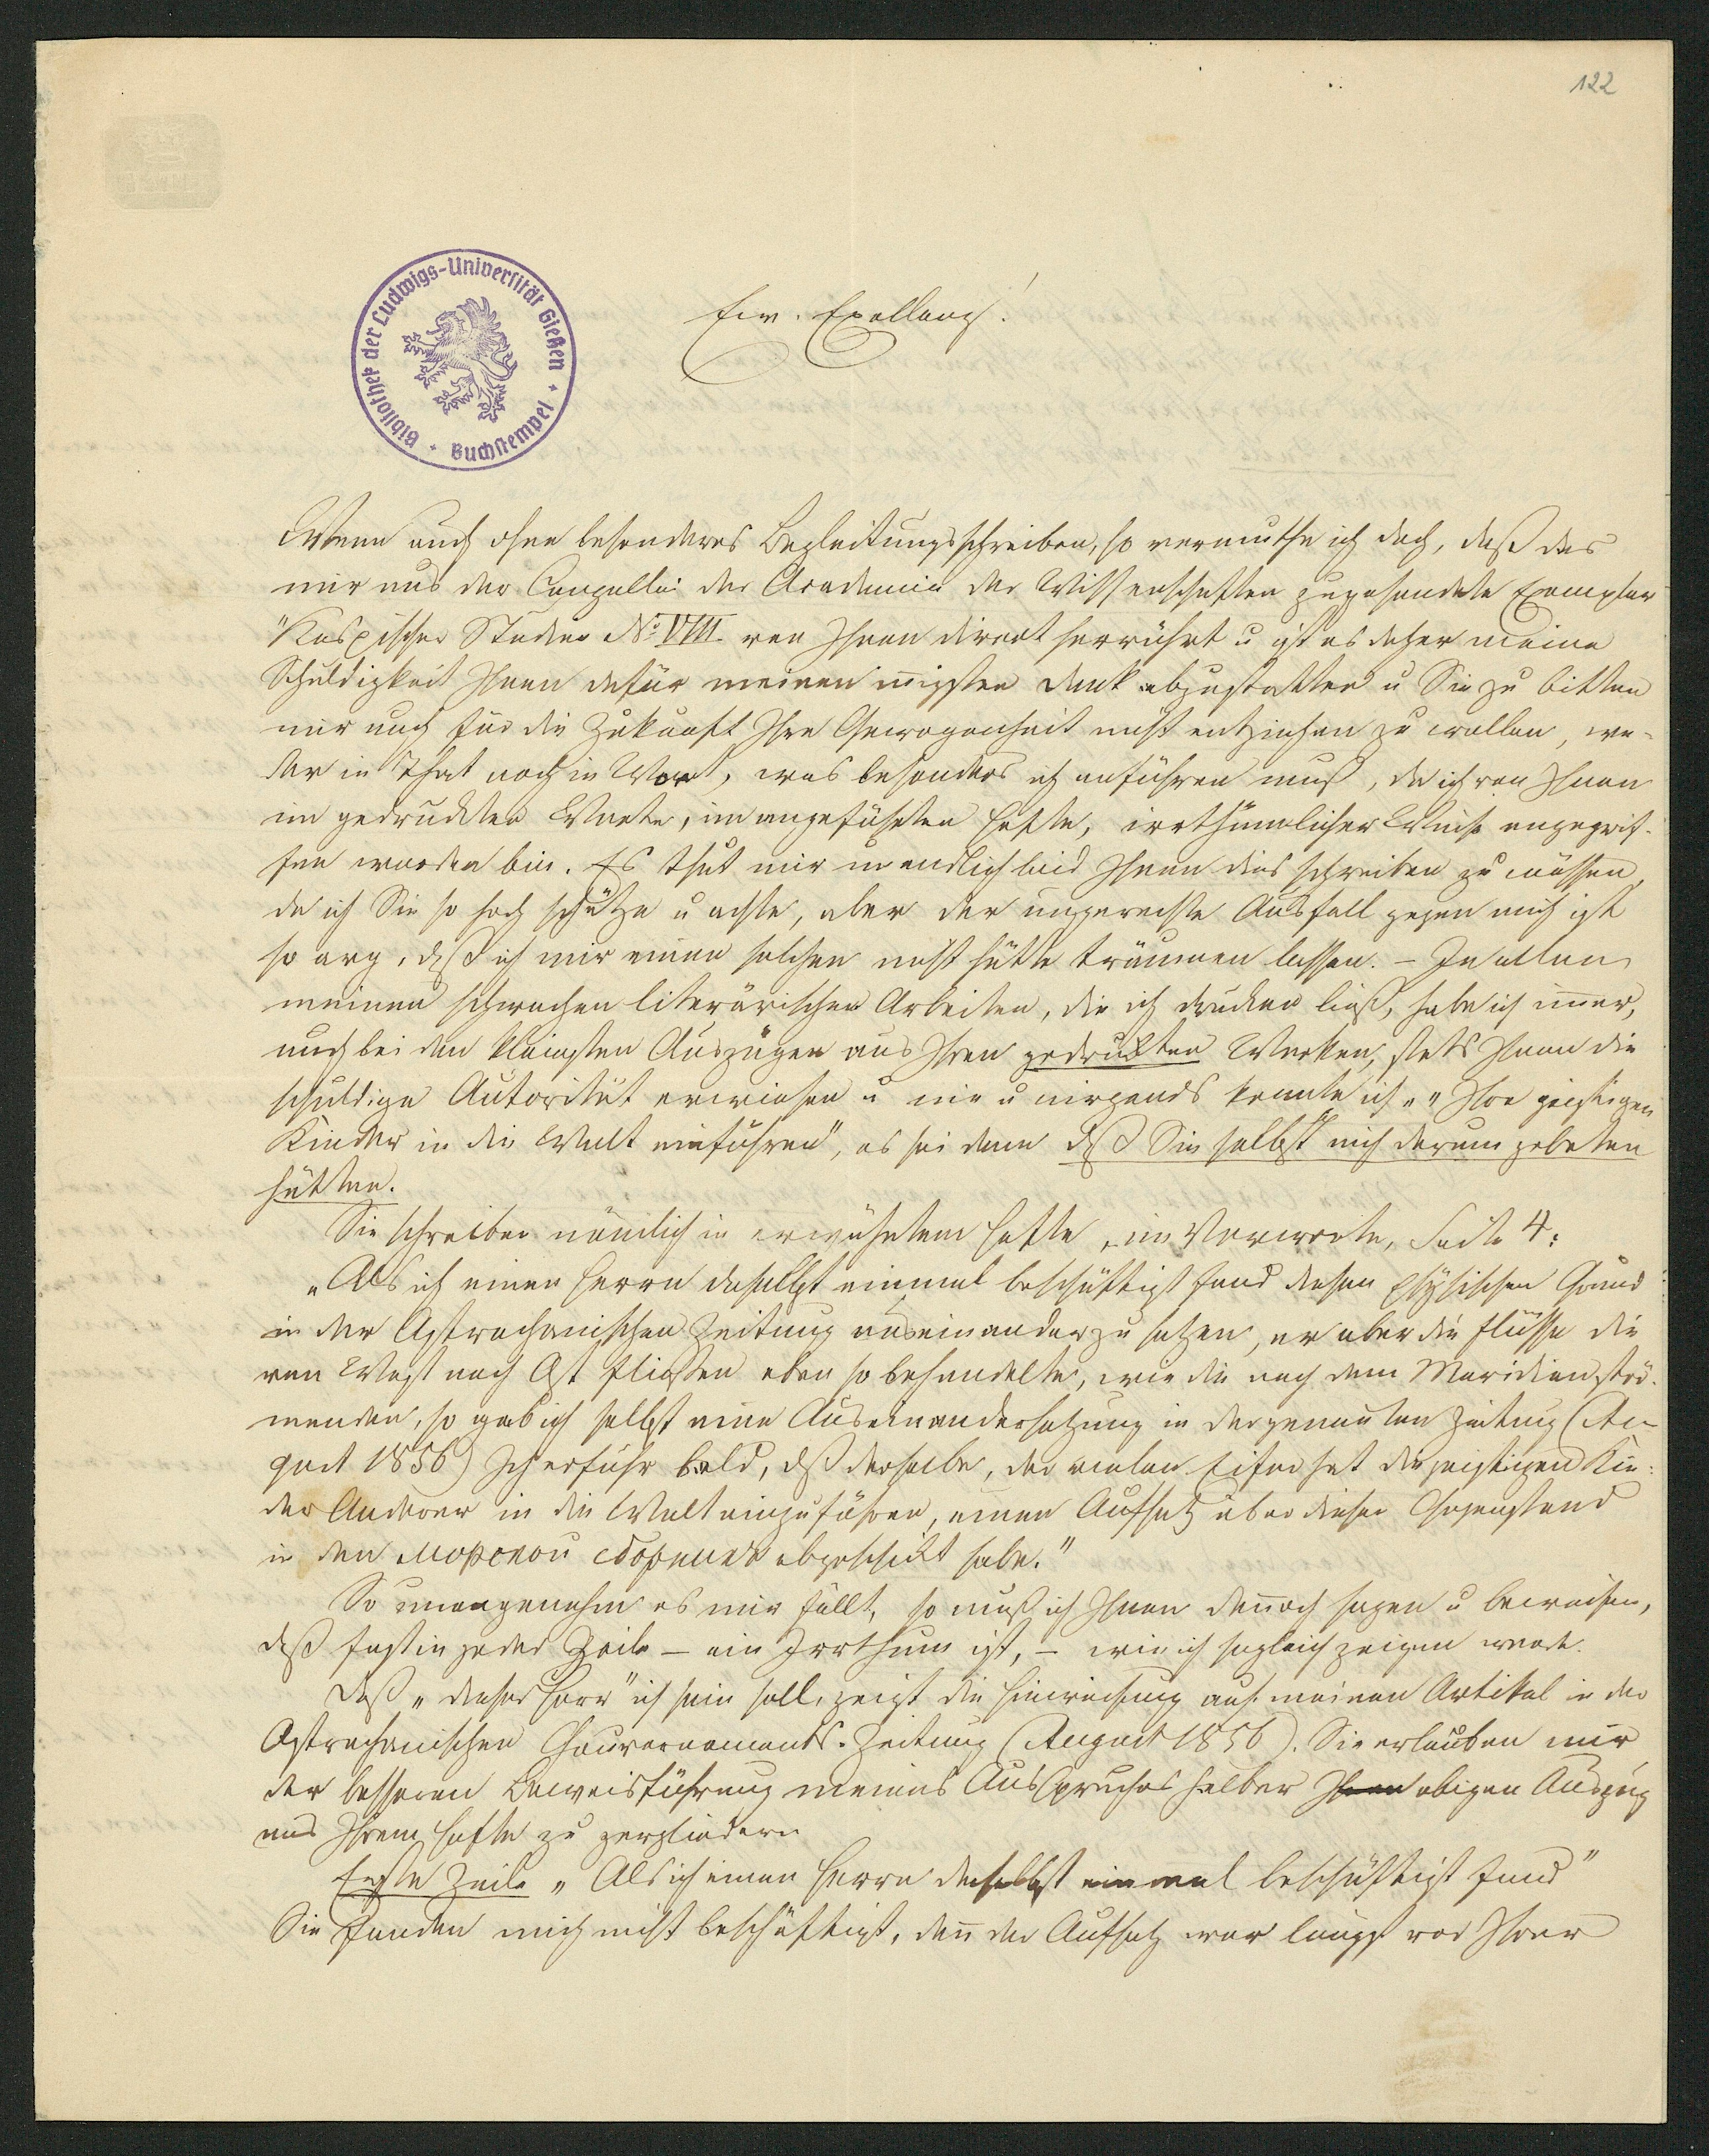 122
Bibliothek der Ludwigs-Universität Gießen
Buchstempel
Ew. Exellenz!
Wenn auch ohne besonderes Begleitungsschreiben, so vermuthe ich doch, daß das
mir aus der Canzellei der Academie der Wissenschaften zugesendete Exemplar
"Kaspischer Studien No VIII von Ihnen direct herrührt u ist es daher meine
Schuldigkeit Ihnen dafür meinen innigsten Dank abzustatten u Sie zu bitten
mir auch für die Zukunft Ihre Gewogenheit nicht entziehen zu wollen, we-
der in That noch in Wort, was besonders ich anführen muß, da ich von Ihnen
im gedruckten Worte, im angeführten Hefte, irrthümlicher Weise angegrif-
fen worden bin. Es thut mir unendlich leid Ihnen dies schreiben zu müssen,
da ich Sie so hoch schätze u achte, aber der ungerechte Ausfall gegen mich ist
so arg, daß ich mir einen solchen nicht hätte träumen lassen. – In allen
meinen schwachen literärischen Arbeiten, die ich drucken ließ, habe ich immer,
auch bei den kleinsten Auszügen aus Ihren gedruckten Werken, stets Ihnen die
schuldige Autorität erwiesen u nie u nirgends konnte ich „" Ihre geistigen
Kinder in die Welt einführen", es sei denn daß Sie selbst mich darum gebeten
hätten.
Sie schreiben nämlich in erwähntem Hefte, im Vorworte, Seite 4:
„Als ich einen Herrn daselbst einmal beschäftigt fand diesen physischen Grund
in der Astrachanischen Zeitung auseinander zu setzen, er aber die Flüsse die
von West nach Ost fließen eben so behandelte, wie die nach dem Meridian strö-
menden, so gab ich selbst eine Auseinandersetzung in der genannten Zeitung (Au-
gust 1856) Ich erfuhr bald, daß derselbe, der vielen Eifer hat die geistigen Kin-
der Anderer in die Welt einzuführen, einen Aufsatz über diesen Gegenstand
in den Морской сборникъ abgeschickt habe."
So unangenehm es mir fällt, so muß ich Ihnen dennoch sagen u beweisen,
daß fast in jeder Zeile – ein Irrthum ist, – wie ich sogleich zeigen werde.
Daß „dieser Herr" ich sein soll, zeigt die Hinweisung auf meinen Artikel in der
Astrachanischen Gouvernements-Zeitung (August 1856). Sie erlauben mir
der besseren Beweisführung meines Ausspruches halber obigen Auszug
aus Ihrem Hefte zu zergliedern
Erste Zeile „Als ich einen Herrn daselbst einmal beschäftigt fand"
Sie fanden mich nicht beschäftigt, denn der Aufsatz war längst vor Ihrer